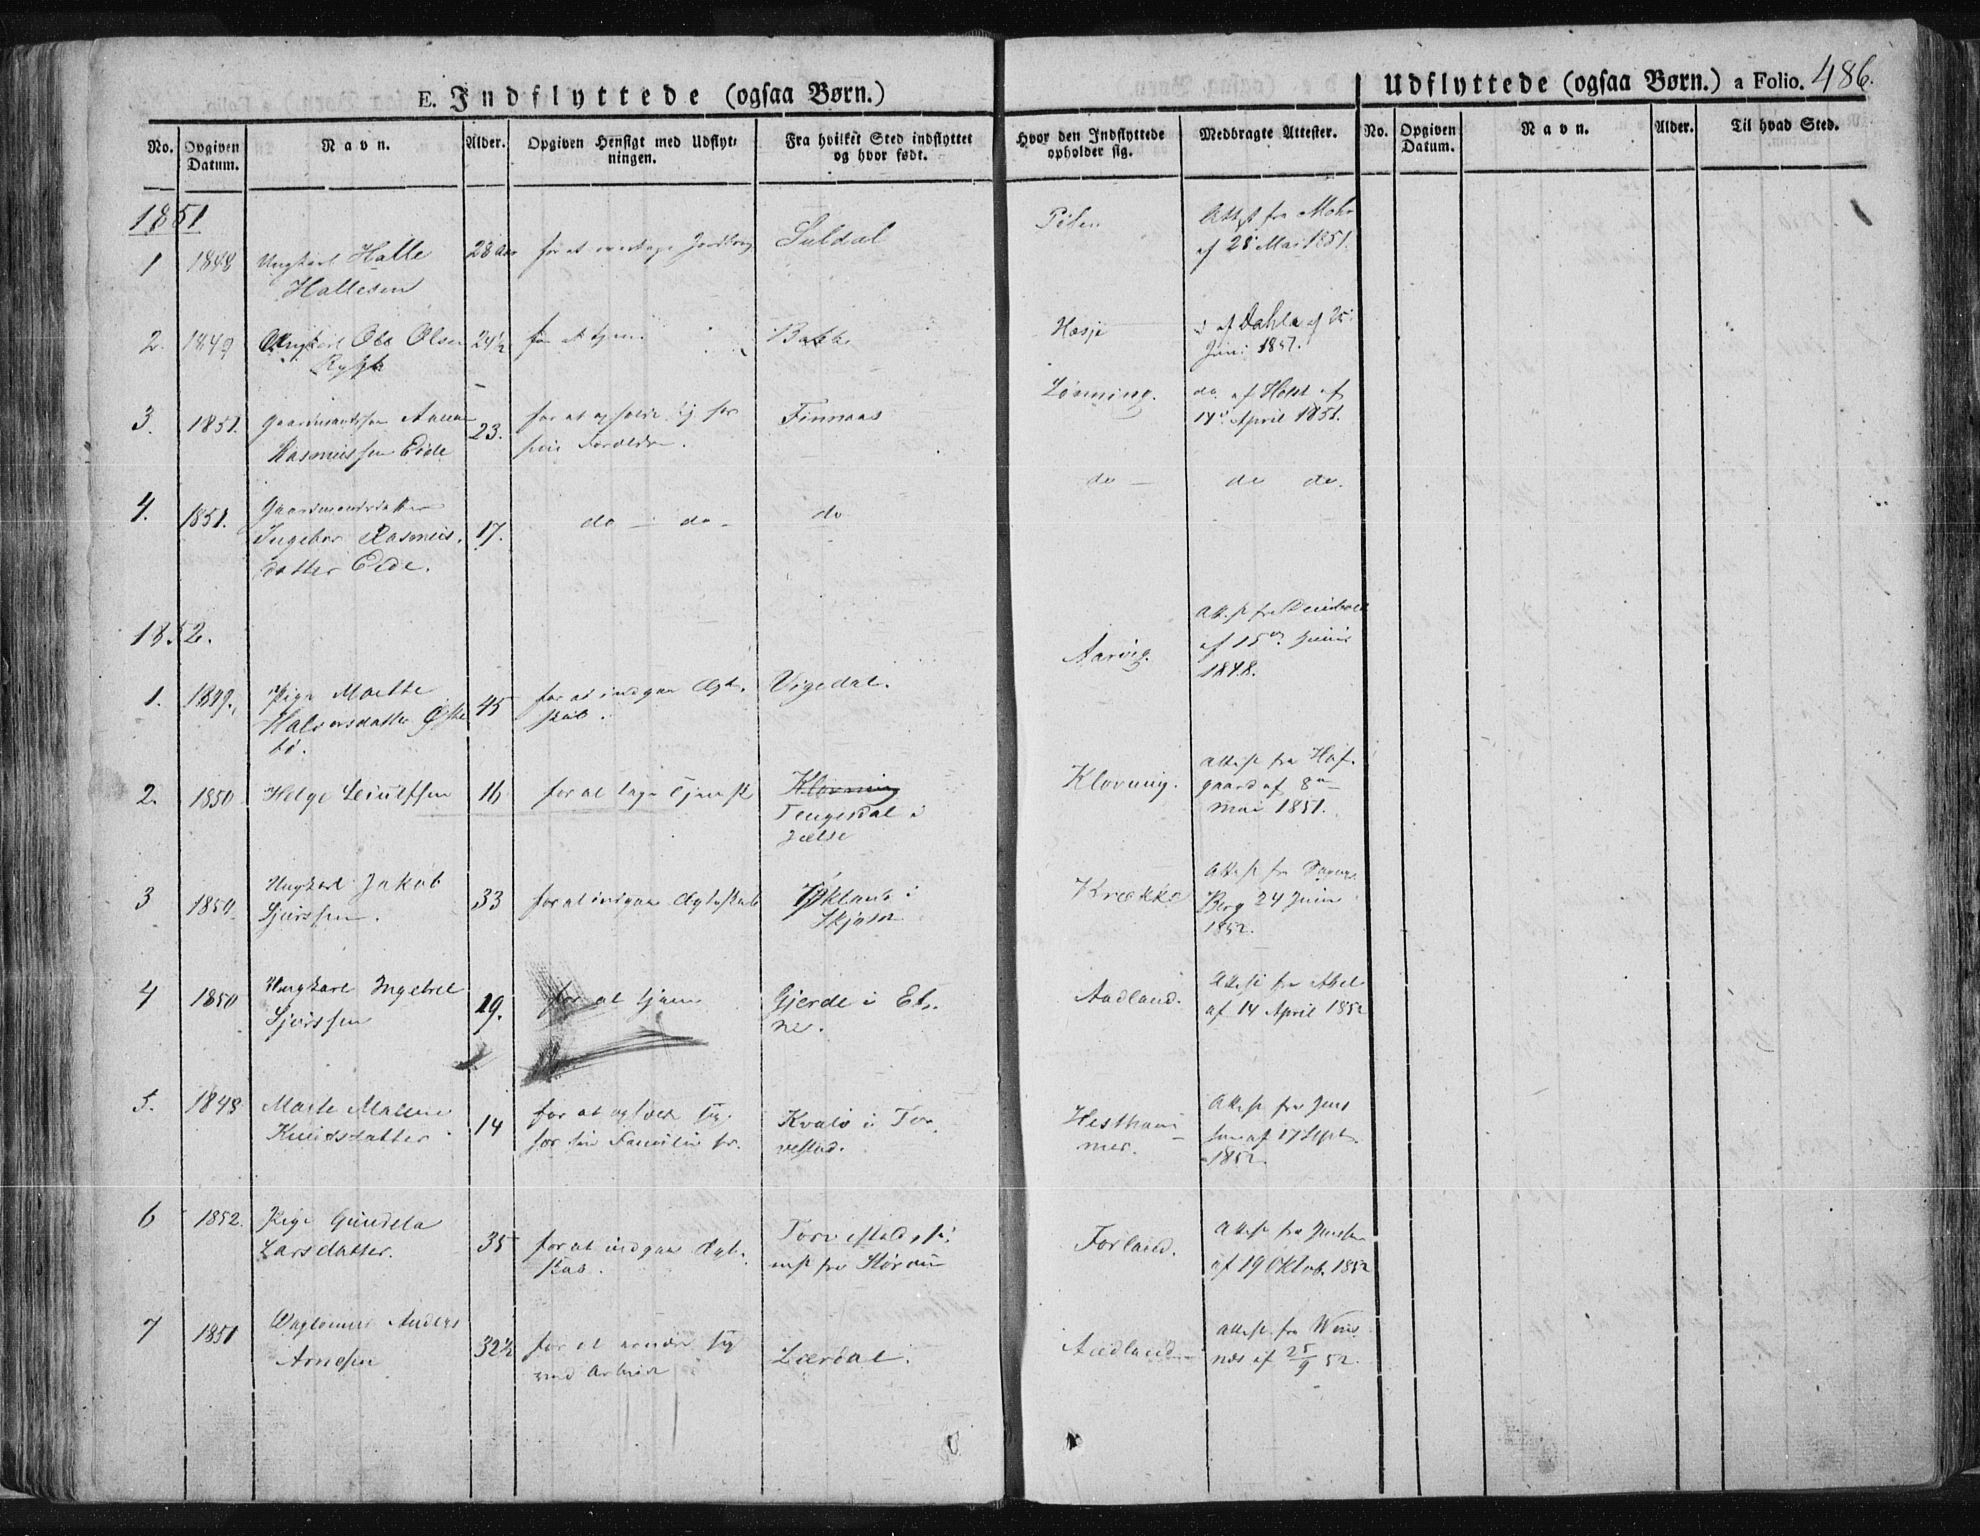 E. Indflyttede (ogsaa Børn.)
Udflyttede (ogsaa Børn.) a Folio. 486.
No. Opgiven Datum. Navn. Alder. Opgiven Hensigt med Udflytningen. Fra hvilket Sted indflyttet og hvor født. Hvor den Indflyttede opholder sig. Medbragte Attester. No. Opgiven Datum. Navn. Alder. Til hvad Sted.
1851
1 1848 Ungkarl Halle
Hallesen
28 Aar for at
Suldal
Attest fra Mohr
af 28 Mai 1851.
2. 1849 Ungkarl Ole Olsen
24½ for at tjene
Bakke
af Dahl af 25
Juni 1851.
3. 1851. Gaardmandssøn
Rasmussen Eide
23. for at opholde sig hos
sine Forældre.
Finnaas
Lønning.
do af Holst af
14 April 1851.
4. 1851. Gaardmandsdatter
Ingebor Rasmus-
datter Eide.
17. do - do -
do
do -
do do.
1852.
1. 1849. Pige Marthe
Halvorsdatter Øste
bø.
45 for at indgaa Ægte-
skab.
Vigedal.
Aarvig.
Attest fra
af 15de Junii
1848.
2. 1850 Helge Leiulfsen 16 for at tage Tjeneste
Klovning
Tengesdal i
Jelse
Klovning.
Attest fra Hof-
gaard af 8de
Mai 1851.
3 1850 Ungkarl Jakob
Sjurssen.
33 for at indgaa Ægteskab
i
Skjold
Krække
Attest fra
Berg 24 Juni
1852.
4 1850 Ungkarl Ingebret
Sjurssen
19. for at tjene
Gjerde i Et-
ne.
Aadland.
Attest fra Abel
af 14 April 1852
5. 1848 Marte Malene
Knudsdatter
14 for at opholde sig
hos sin Familie
Kvalø i Tor-
vestad.
Hestham-
mer.
Attest fra Jens
sen af 17 Sept.
1852.
6 1852. Pige Gundela
Larsdatter.
35 for at indgaa Ægte-
skab.
Torvestad,
fra
Forland.
Attest fra Jensen
af 19 Oktob. 1852
7 1851 Anders
Arnesen
32½ for at ernære sig
ved Arbeide
Lærdal.
Aadland
Attest fra
næs af 25/9 52.